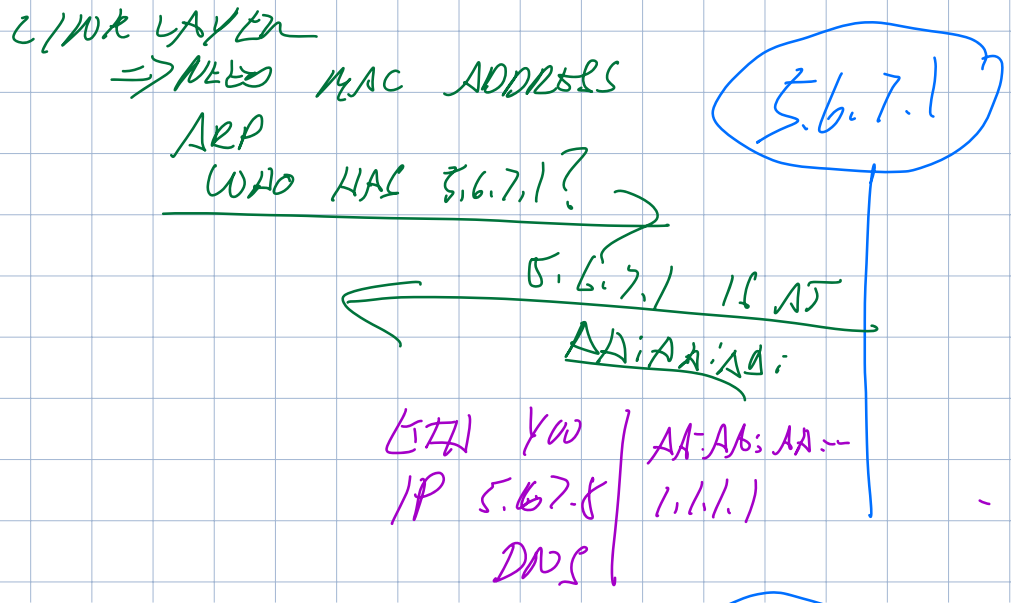 LINK LAYER
=> NEED MAC ADDRESS
5.6.7.1
ARP
WHO HAS 5.6.7.1?
5.6.7.1 IS AT
AA:AA:AA:
ETH YOU | AA:AA:AA:--
IP 5.6.7.8 | 1.1.1.1
DNS